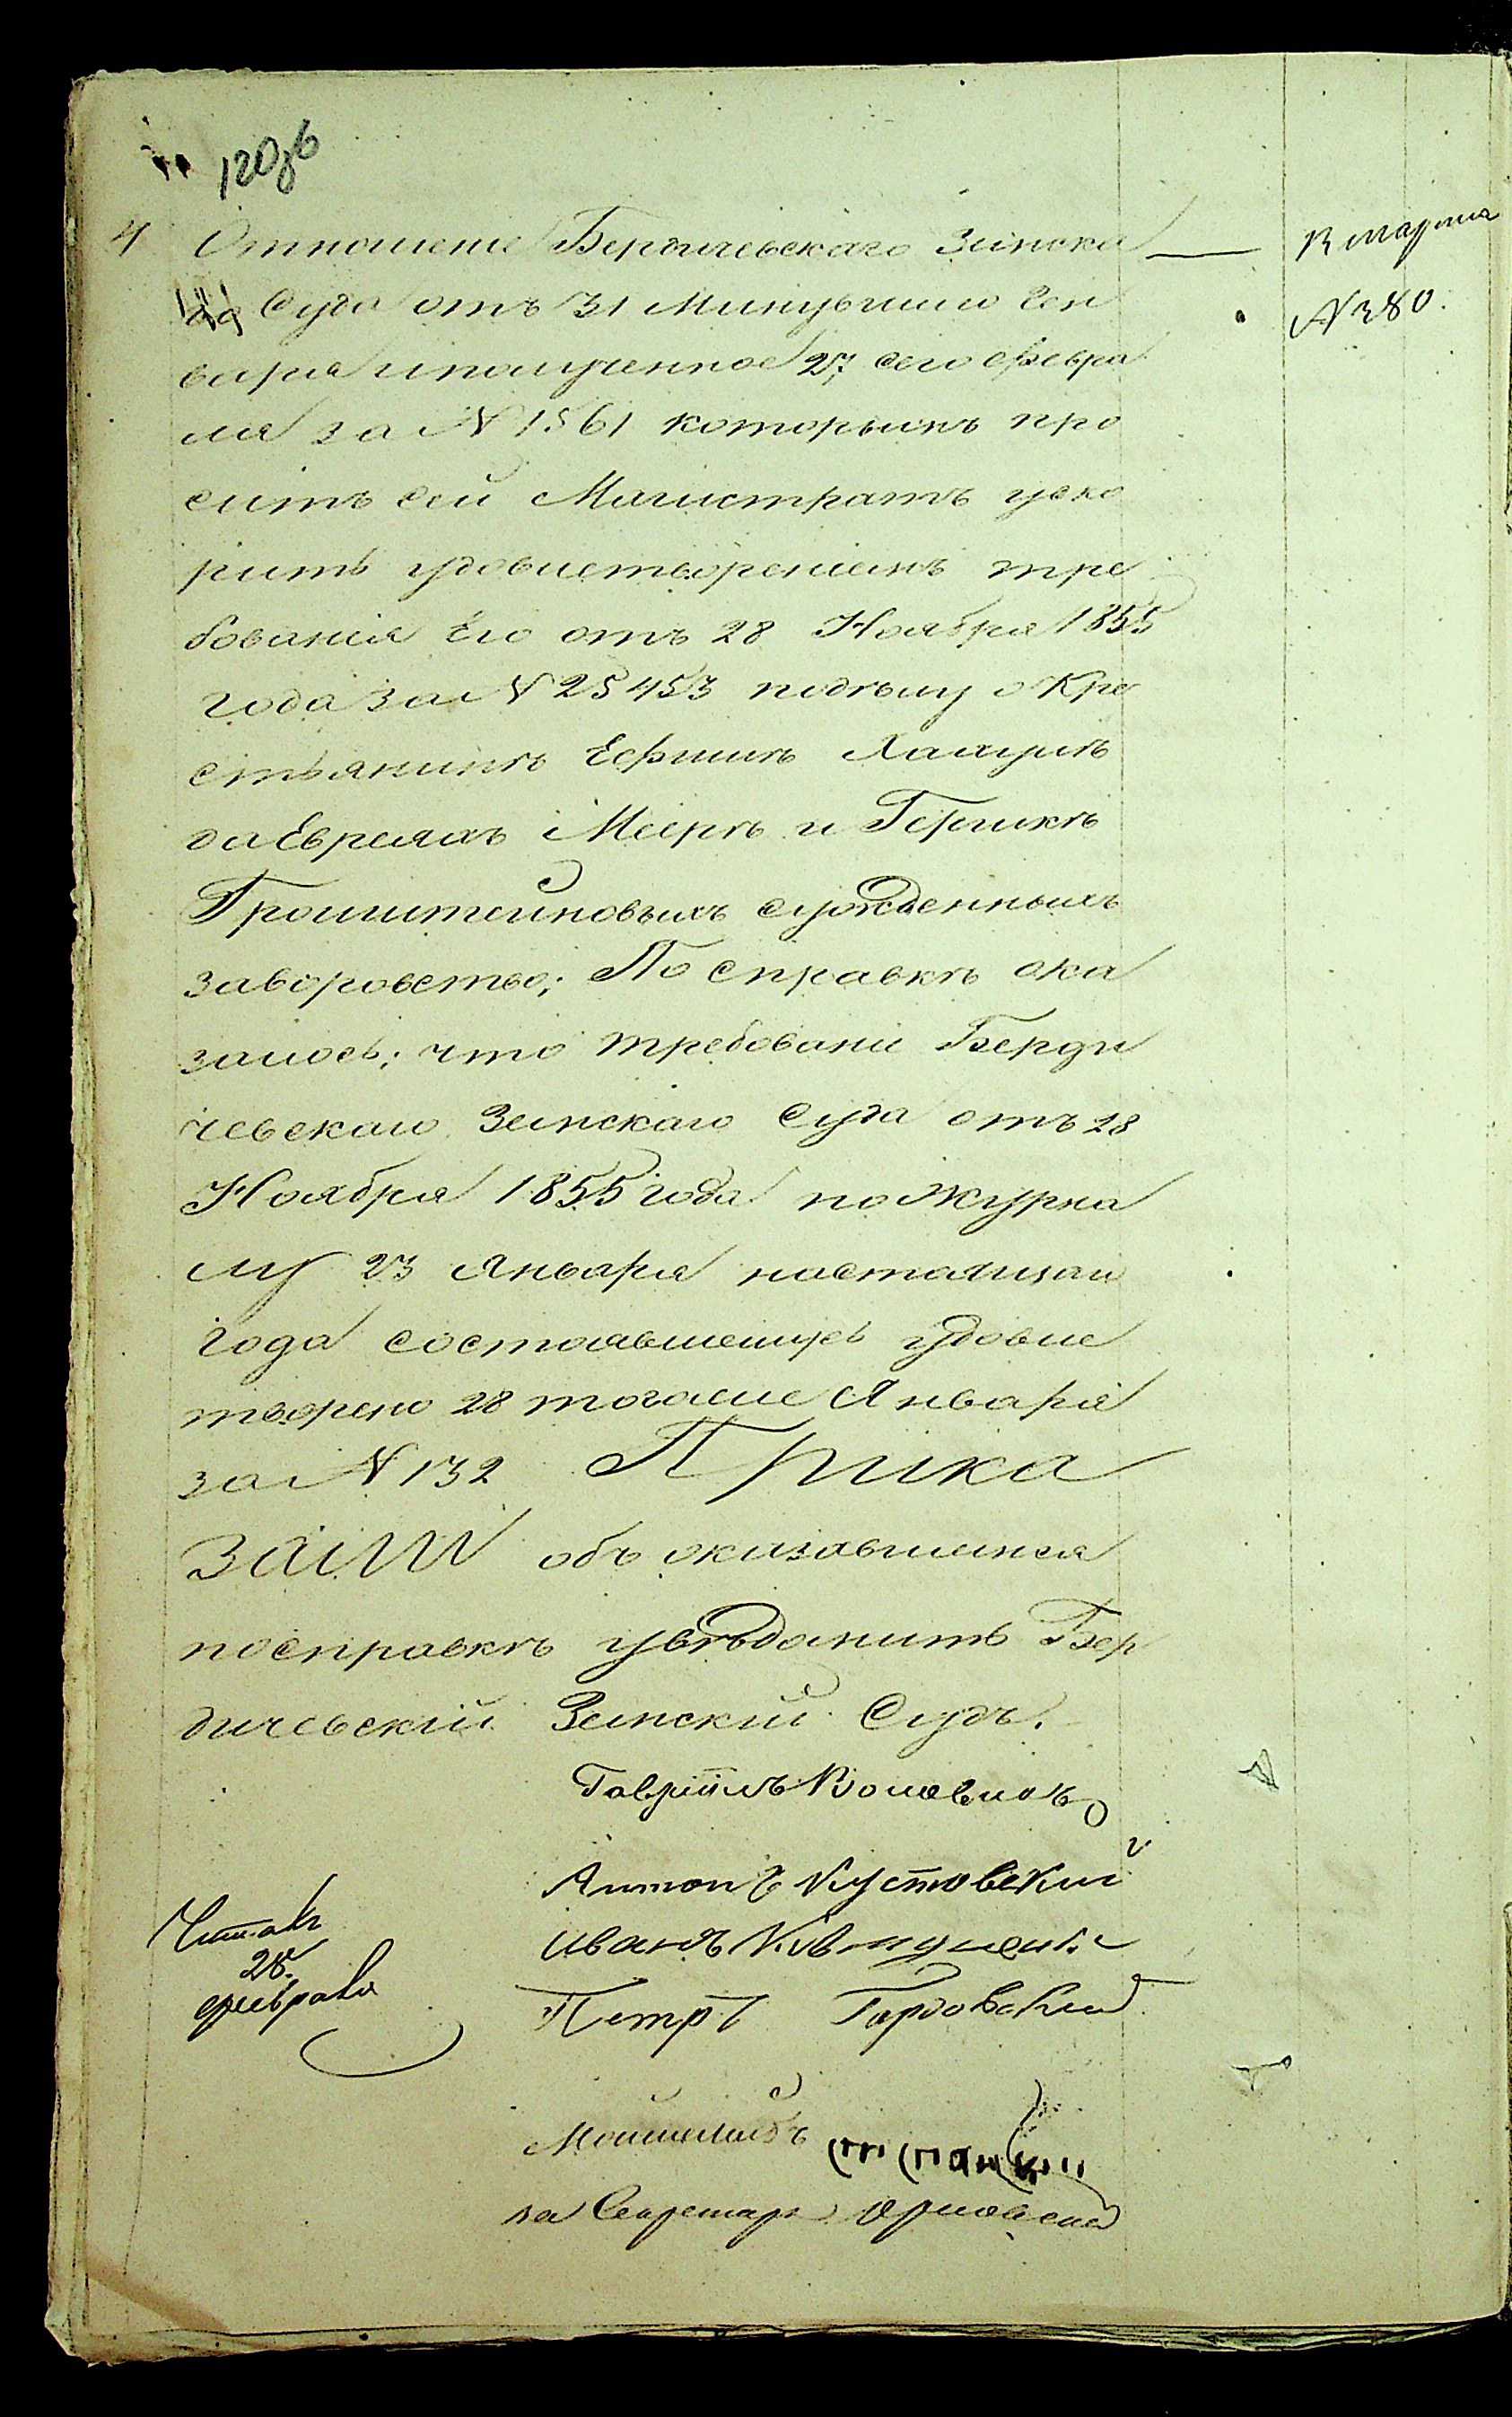 120об
4 Отношеніе Бердичевскаго Земска
Суда отъ 31 Минувшаго Ген
варя и полученное 27 сего Февра
ля за № 1561 которымъ про
ситъ сей Магистратъ уско
рить удовлетвореніемъ тре
бованія Его отъ 28 Ноября 1855
года за № 25453 подѣлу о Кре
стьянинѣ Ефимѣ
да Евреяхъ Меерѣ и Гершкѣ
Гроштейновыхъ сужденныхъ
заворовство; По справкѣ ока
залось; что требованіе Берди
чевскаго Земскаго Суда отъ 28
Ноября 1855 года по Журна
лу 23 Января настоящаго
года состоявшемусь удовле
творено 28 тогоже Января
за № 132 Прика
зали объ оказавшемся
посправкѣ увѣдомить Бер
дичевскій Земскій Судъ.
Гавріилъ
Антонъ Кустовский
Иванъ
Петръ
за Секретаря Орловский
Читалъ
28
февраля
13 марта
№ 380.